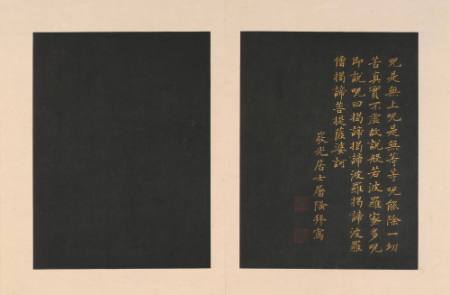 呪是無上呪是無等等呪能除一切
苦真實不虛故說般若波羅蜜多呪
即說呪曰揭諦揭諦波羅揭諦波羅
僧揭諦菩提薩婆訶
居士拜寫